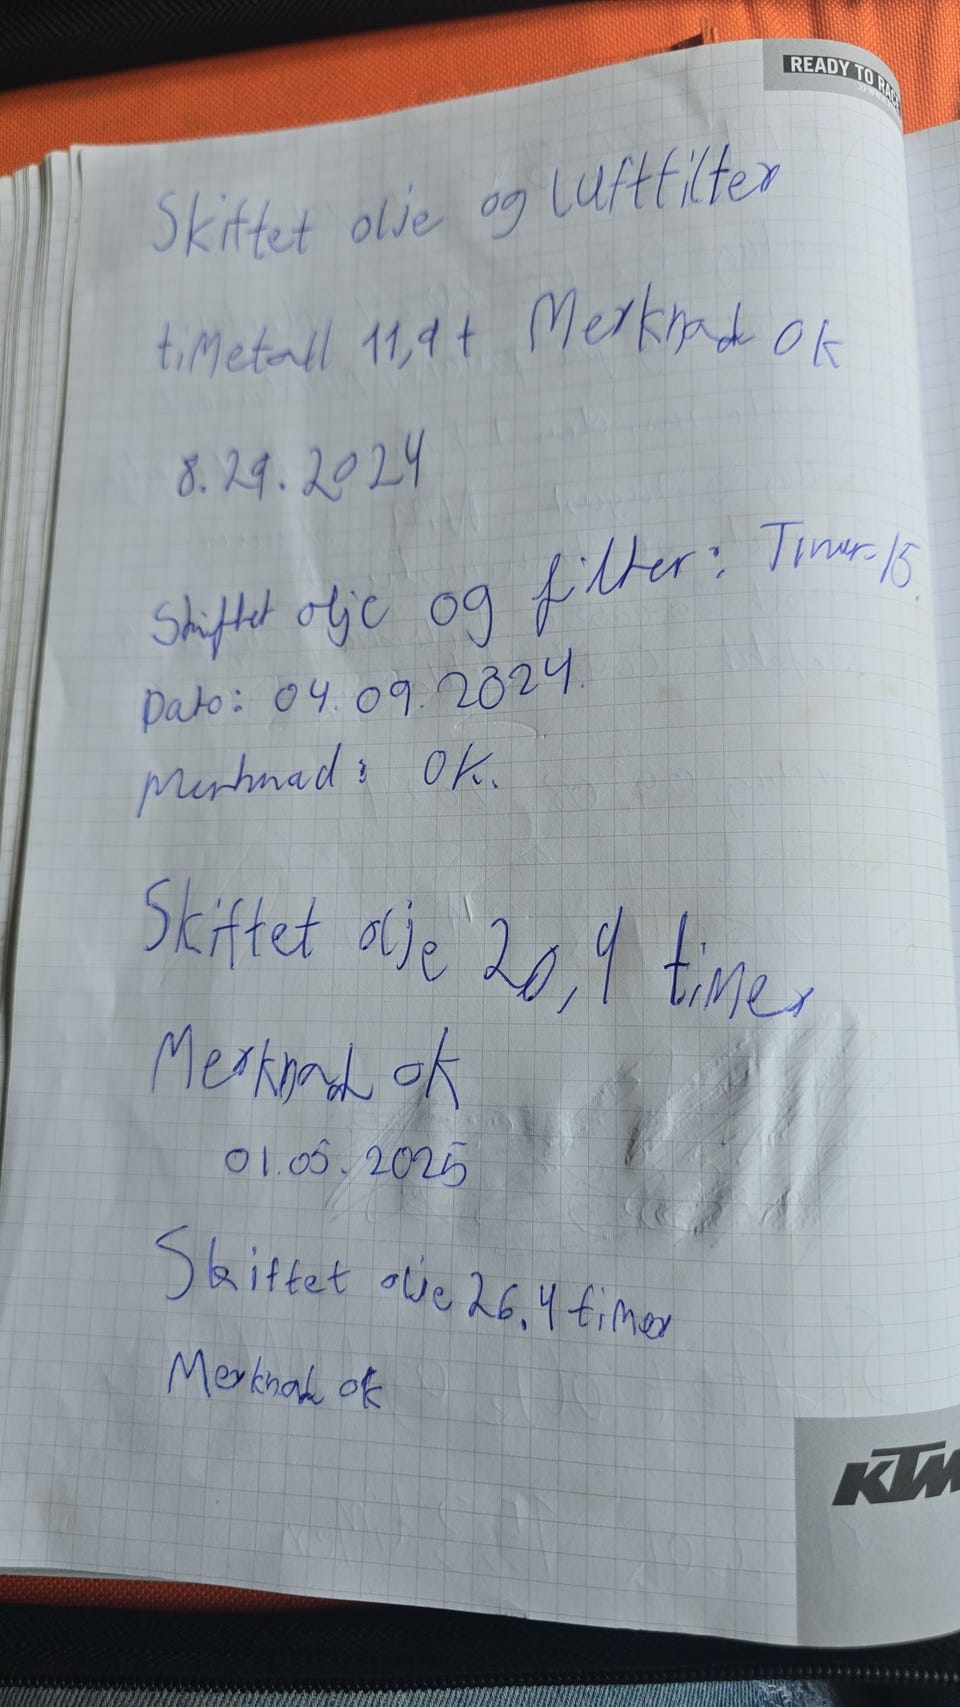 READY TO RAC
Skiftet olje og luftfilter
timetall 11,9 t Merknad ok
8.29.2024
Skiftet olje og filter: Timer-15.
Dato: 04.09.2024.
Merknad: OK.
Skiftet olje 20,4 timer
Merknad ok
01.05.2025
Skiftet olje 26,4 timer
Merknad ok
KTM